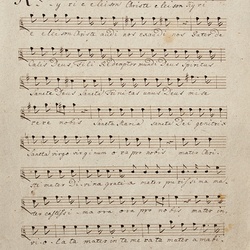 y ri e eleison Christe eleison Kyri
e eleison Christe audi nos exaudi nos Pater de
Caelis Deus Fili Redemptor mundi Deus Spiritus
Sancte Deus Sancta Trinitas unus Deus mise
rere nobis Sancta Maria Sancta Dei genitrix
Sancta virgo virginum ora pro nobis mater Chri
sti mater divinae gratiae mater purissima ma
ter castissi ma ora ora pro nobis mater in
vio lata mater intemerata mater amabi